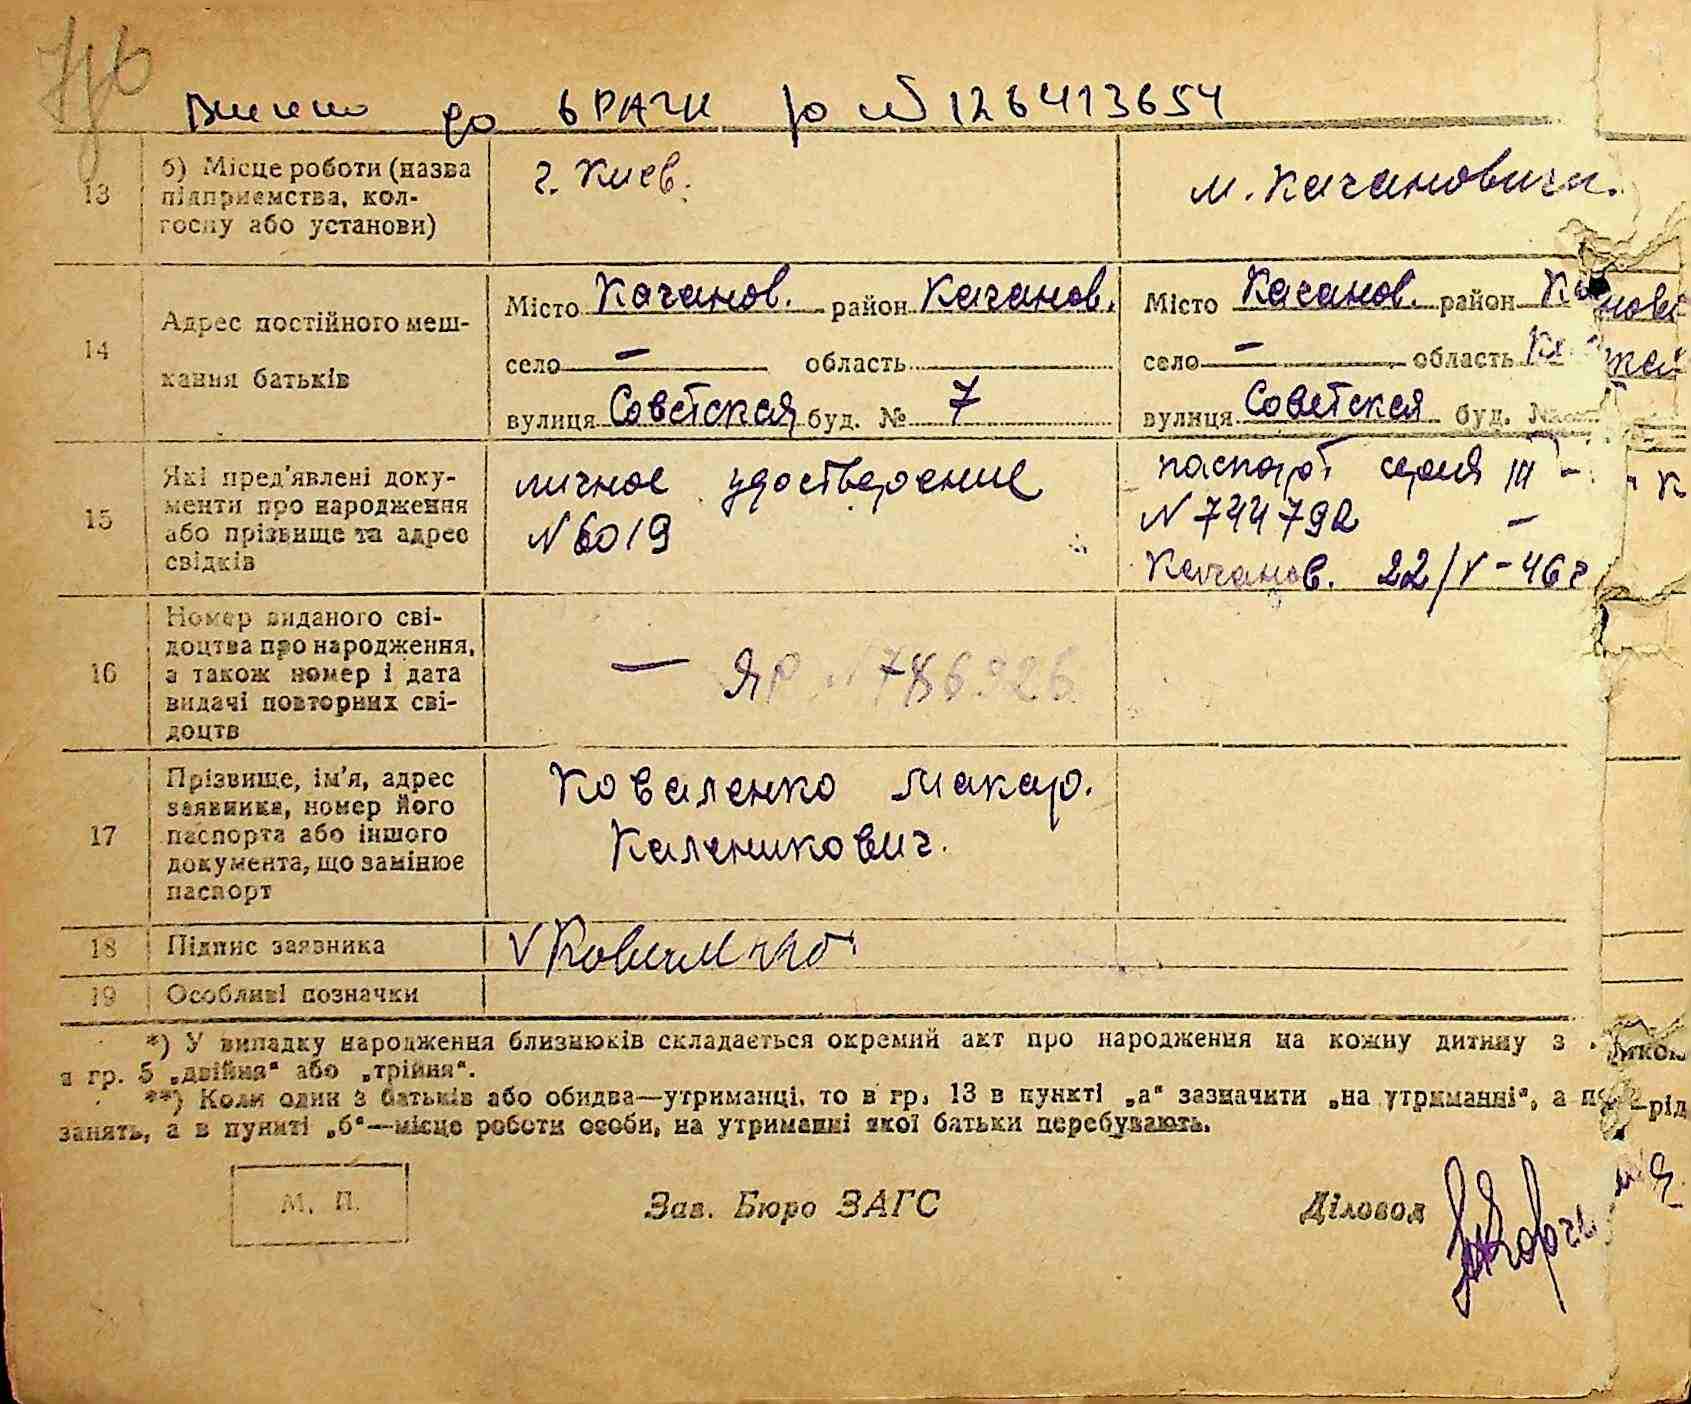 Внесено до ВРАЦС № 126413654
13
б) Місце роботи (назва
підприємства, кол-
госпу або установи)
г. Киев.
м. Качановичи.
14
Адрес постійного меш-
кання батьків
Місто Качанов. район Качанов.
село — область
вулиця Советская буд. № 7
Місто Качанов. район
село — область
вулиця Советская буд. №
15
Які пред'явлені доку-
менти про народження
або прізвище та адрес
свідків
личное удостверение
№ 6019
паспорт серия III –
№ 744792 –
Качанов. 22/V – 46 г
16
Номер виданого сві-
доцтва про народження,
а також номер і дата
видачі повторних сві-
доцтв
— ЯР № 786926
17
Прізвище, ім'я, адрес
заявника, номер його
паспорта або іншого
документа, що замінює
паспорт
Коваленко Макар.
Каленикович.
18
Підпис заявника
V
19
Особливі позначки
*) У випадку народження близнюків складається окремий акт про народження на кожну дитину з
в гр. 5 „двійня“ або „трійня“.
**) Коли один з батьків або обидва—утриманці, то в гр. 13 в пункті „а“ зазначити „на утриманні“, а
занять, а в пункті „б“—місце роботи особи, на утриманні якої батьки перебувають.
М. П.
Зав. Бюро ЗАГС
Діловод